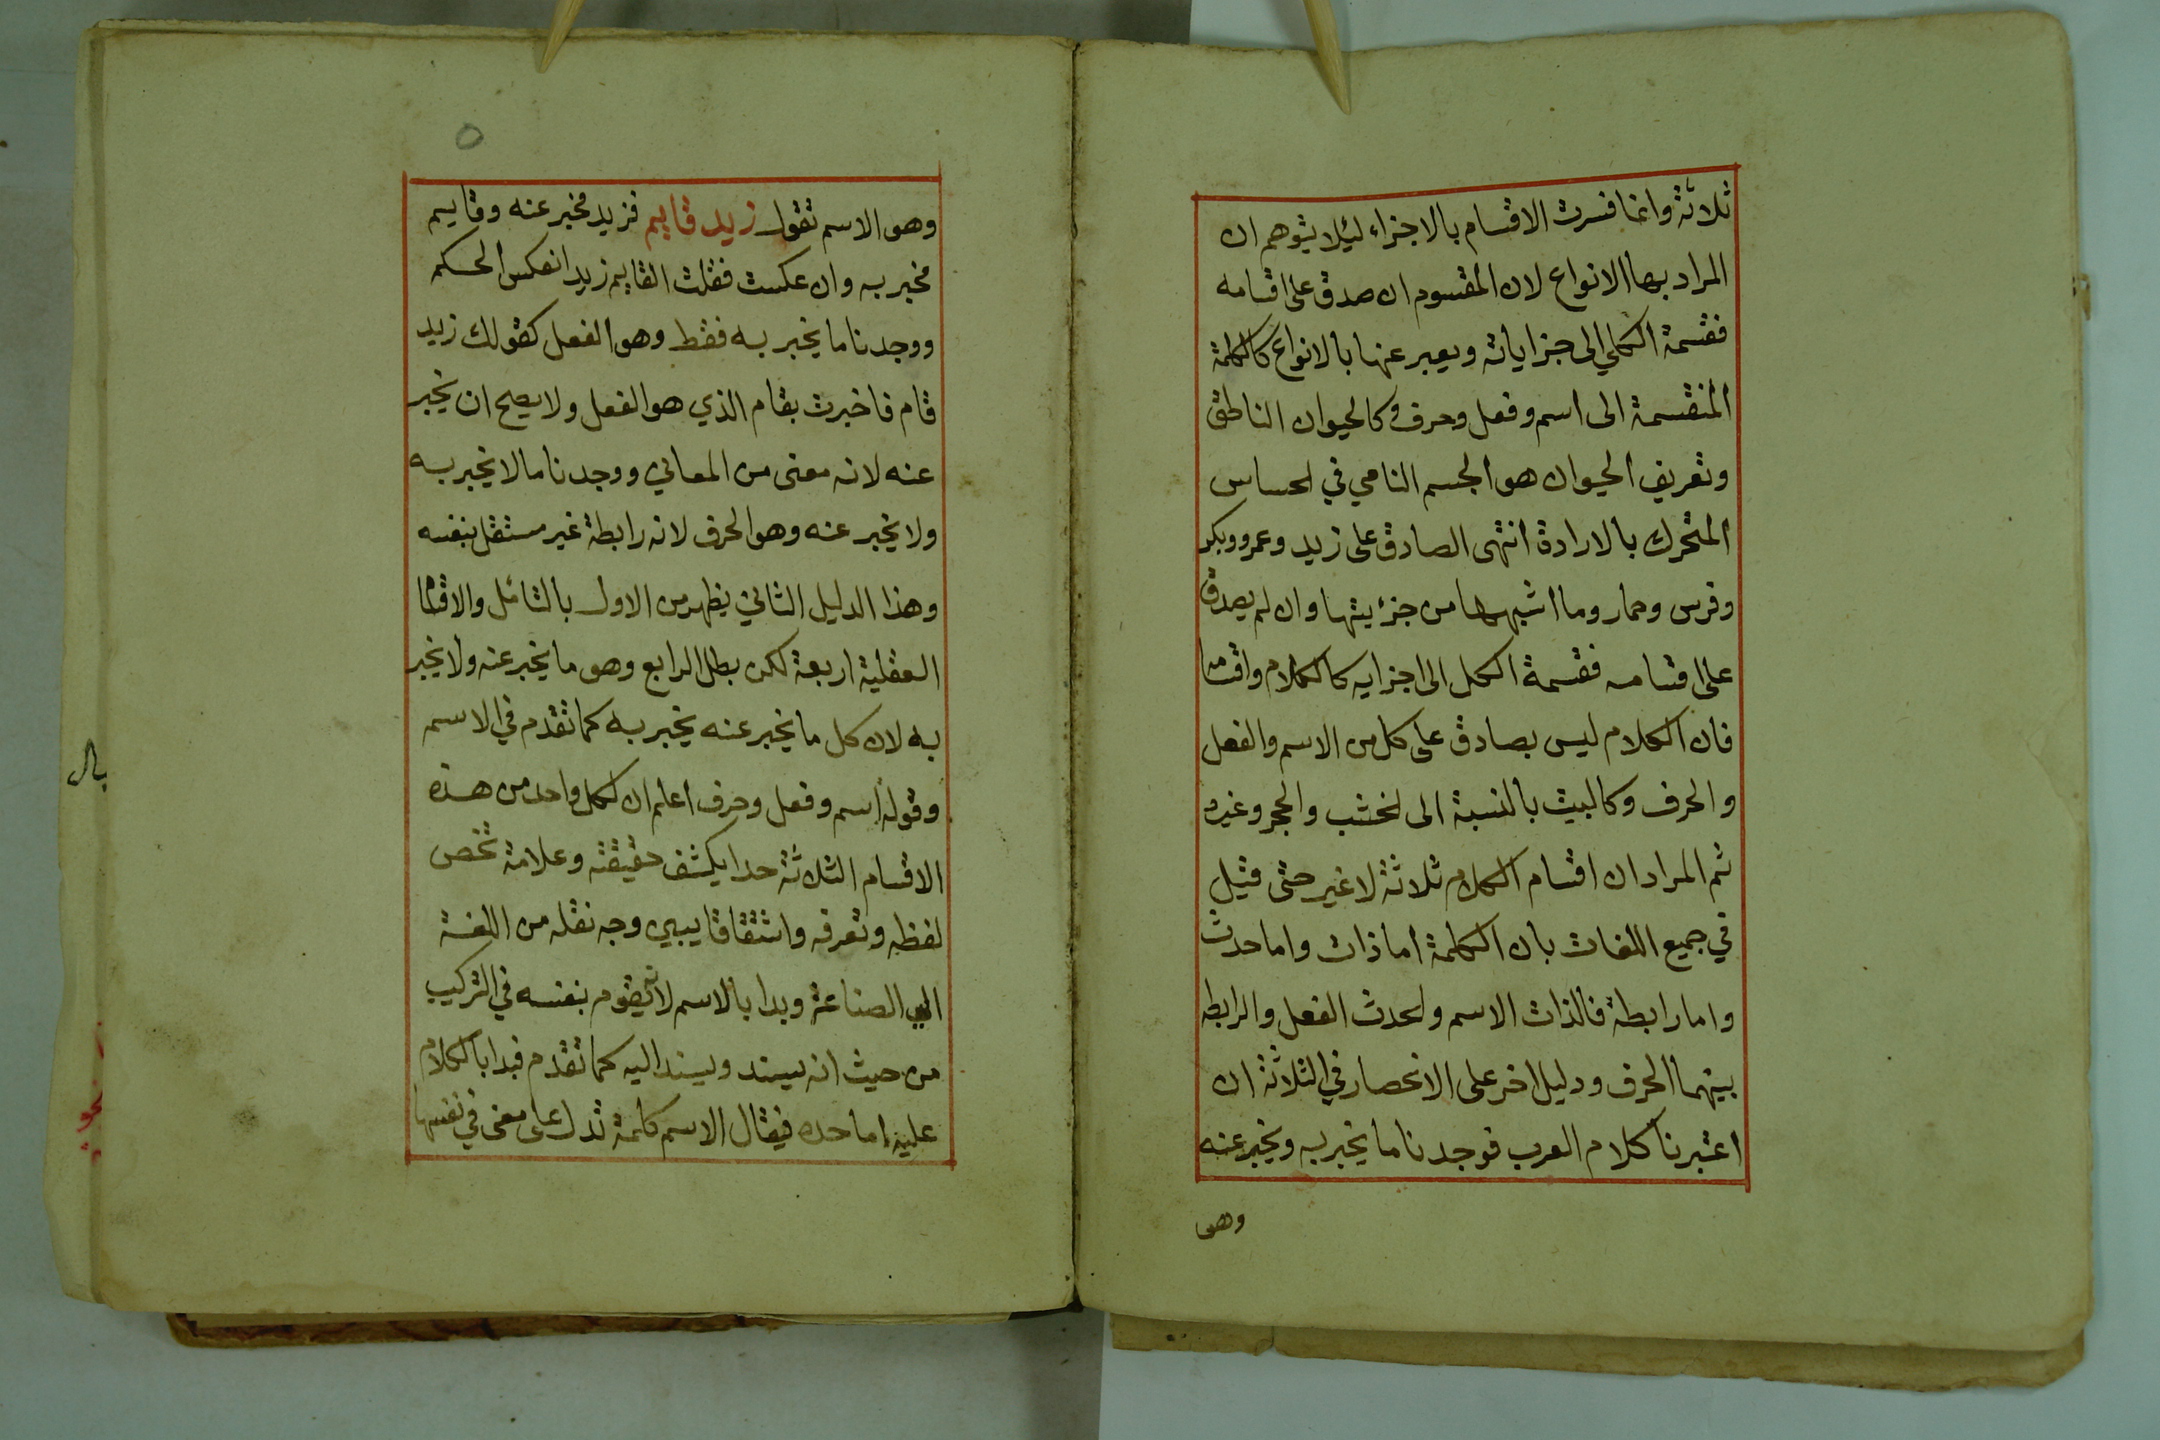 ثلاثة وانما فسرت الاقسام بالاجزاء ليلا يتوهم ان
المراد بها الانواع لان المقسوم ان صدق على اقسامه
فقسمة الكلي الى جزاياته ويعبر عنها بالانواع كالكلمة
المنقسمة الى اسم وفعل وحرف وكالحيوان الناطق
وتعريف الحيوان هو الجسم النامي في الحساس
المتحرك بالارادة انتهى الصادق على زيد وعمرو وبكر
وفرس وحمار وما اشبهها من جزئيتها وان لم يصدق
على اقسامه فقسمة الكل الى اجزايه كالكلام واقسامه
فان الكلام ليس بصادق على كل من الاسم والفعل
والحرف وكالبيت بالنسبة الى الخشب والحجر وغيره
ثم المراد ان اقسام الكلام ثلاثة لا غير حتى قيل
في جميع اللغات بان الكلمة اما ذات واما حدث
واما رابطة فالذات الاسم والحدث الفعل والرابطه
بينهما الحرف ودليل اخر على الانحصار في الثلاثة ان
اعتبرنا كلام العرب فوجدنا ما يخبر به ويخبر عنه
وهو
وهو الاسم تقول زيد قايم فزيد مخبر عنه وقايم
مخبر به وان عكست فقلت القايم زيد انعكس الحكم
ووجدنا ما يخبر به فقط وهو الفعل كقولك زيد
قام فاخبرت بقام الذي هو الفعل ولا يصح ان يخبر
عنه لانه معنى من المعاني ووجدنا ما لا يخبر به
ولا يخبر عنه وهو الحرف لانه رابطة غير مستقل بنفسه
وهذا الدليل الثاني يظهر من الاول بالتامل والاقسام
العقلية اربعة لكن بطل الرابع وهو ما يخبر عنه ولا يخبر
به لان كل ما يخبر عنه يخبر به كما تقدم في الاسم
وقوله اسم وفعل وحرف اعلم ان لكل واحد من هذه
الاقسام الثلاثة حدا يكشف حقيقته وعلامة تخص
لفظه وتعرفه واشتقاقا يبين وجه نقله من اللغة
الى الصناعة وبدا بالاسم لانه يقوم بنفسه في التركيب
من حيث انه يسند ويسند اليه كما تقدم فبدا بالكلام
عليه اما حده فيقال الاسم كلمة تدل على معنى في نفسها